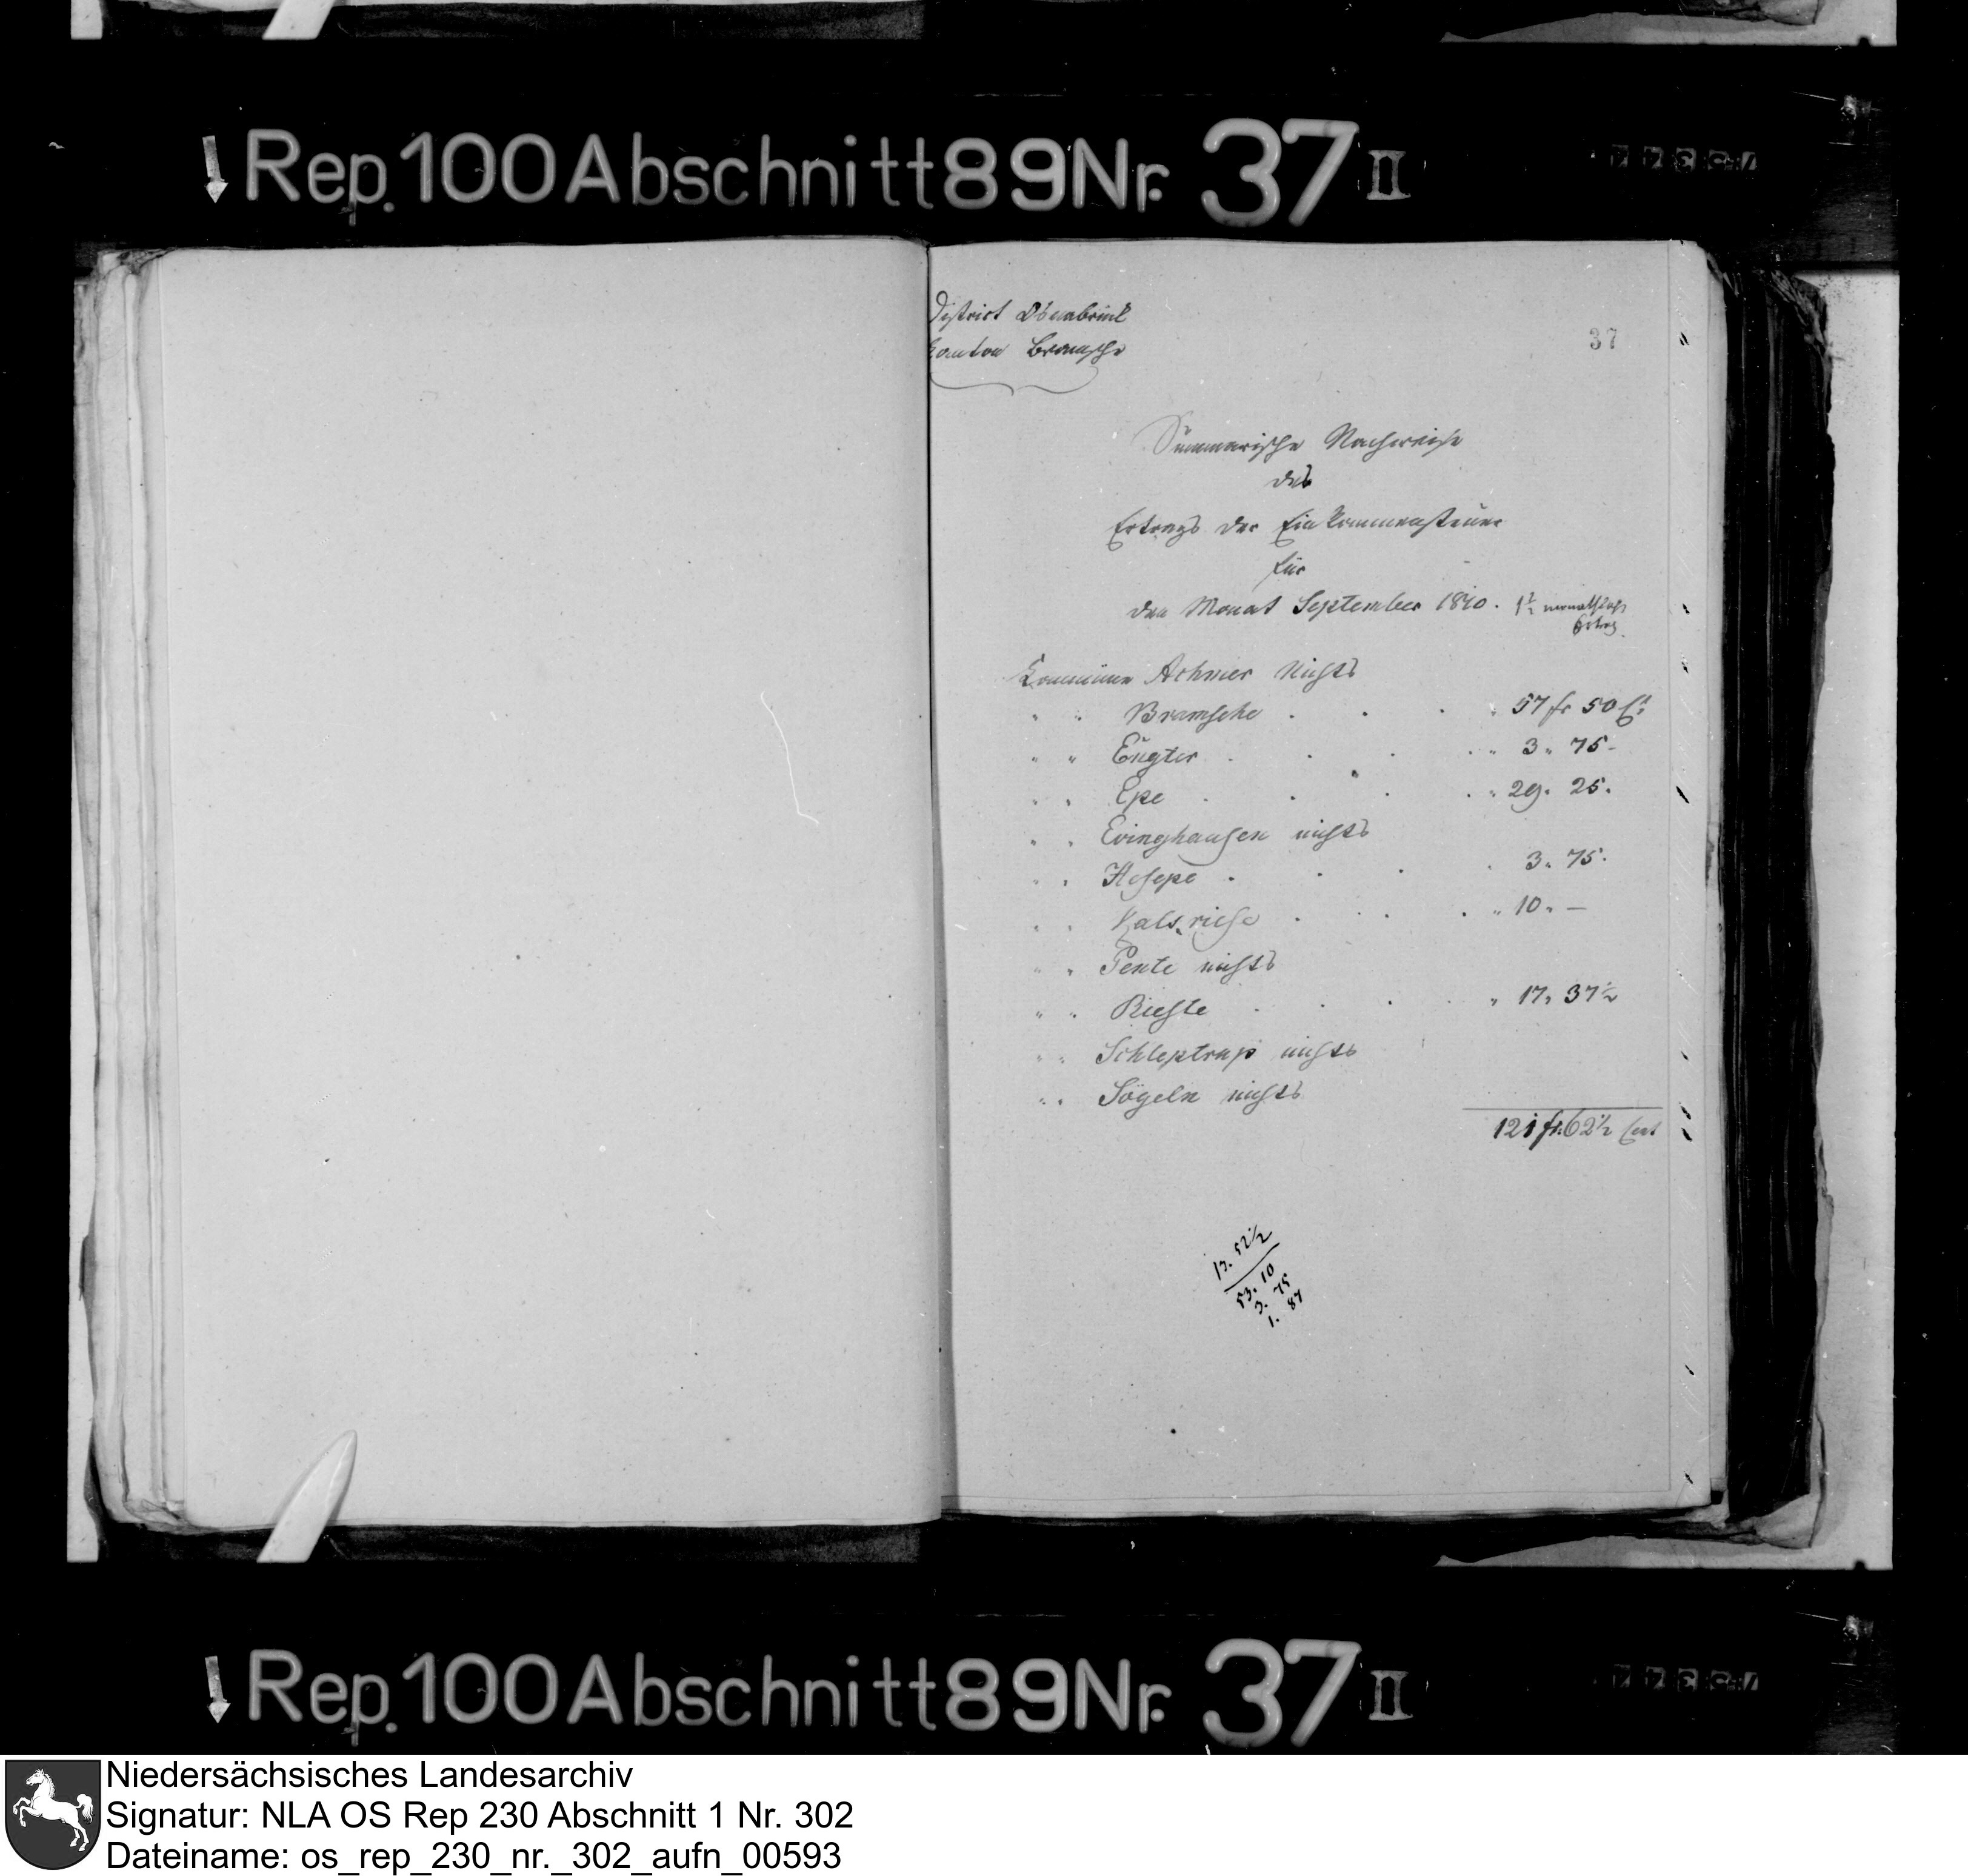 Rep. 100 Abschnitt 89 Nr. 37 II
District Osnabrück
Canton Bramsche
37
Summarische Nachweise
des
Ertrags der Einkommensteuer
für
den Monat September 1810. 1/12 monatlicher
Ertrag.
Commüne Achmer Nichts
" " Bramsche . . . " 57 fr 50 Ct
" " Engter . . . . " 3 " 75 -
" " Epe . . . . " 29. 25.
" " Evinghausen nichts
" " Hesepe . . . . 3. 75.
" " Kalkriese . . . . " 10 " —
" " Pente nichts
" " Rieste . . . . " 17 " 37 1/2
" " Schleptrup nichts
" " Sögeln nichts
121 fr. 62 1/2 Cent
13. 52 1/2
53. 10
3. 75
1. 87
Rep. 100 Abschnitt 89 Nr. 37 II
Niedersächsisches Landesarchiv
Signatur: NLA OS Rep 230 Abschnitt 1 Nr. 302
Dateiname: os_rep_230_nr._302_aufn_00593